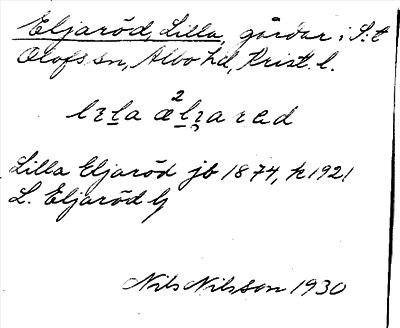 Eljaröd, Lilla, gårdar i S:t
Olofs sn, Albo hd, Krist. l.
Lilla Eljaröd jb 1874, k 1921
L. Eljaröd Gj
Nils Nilsson 1930